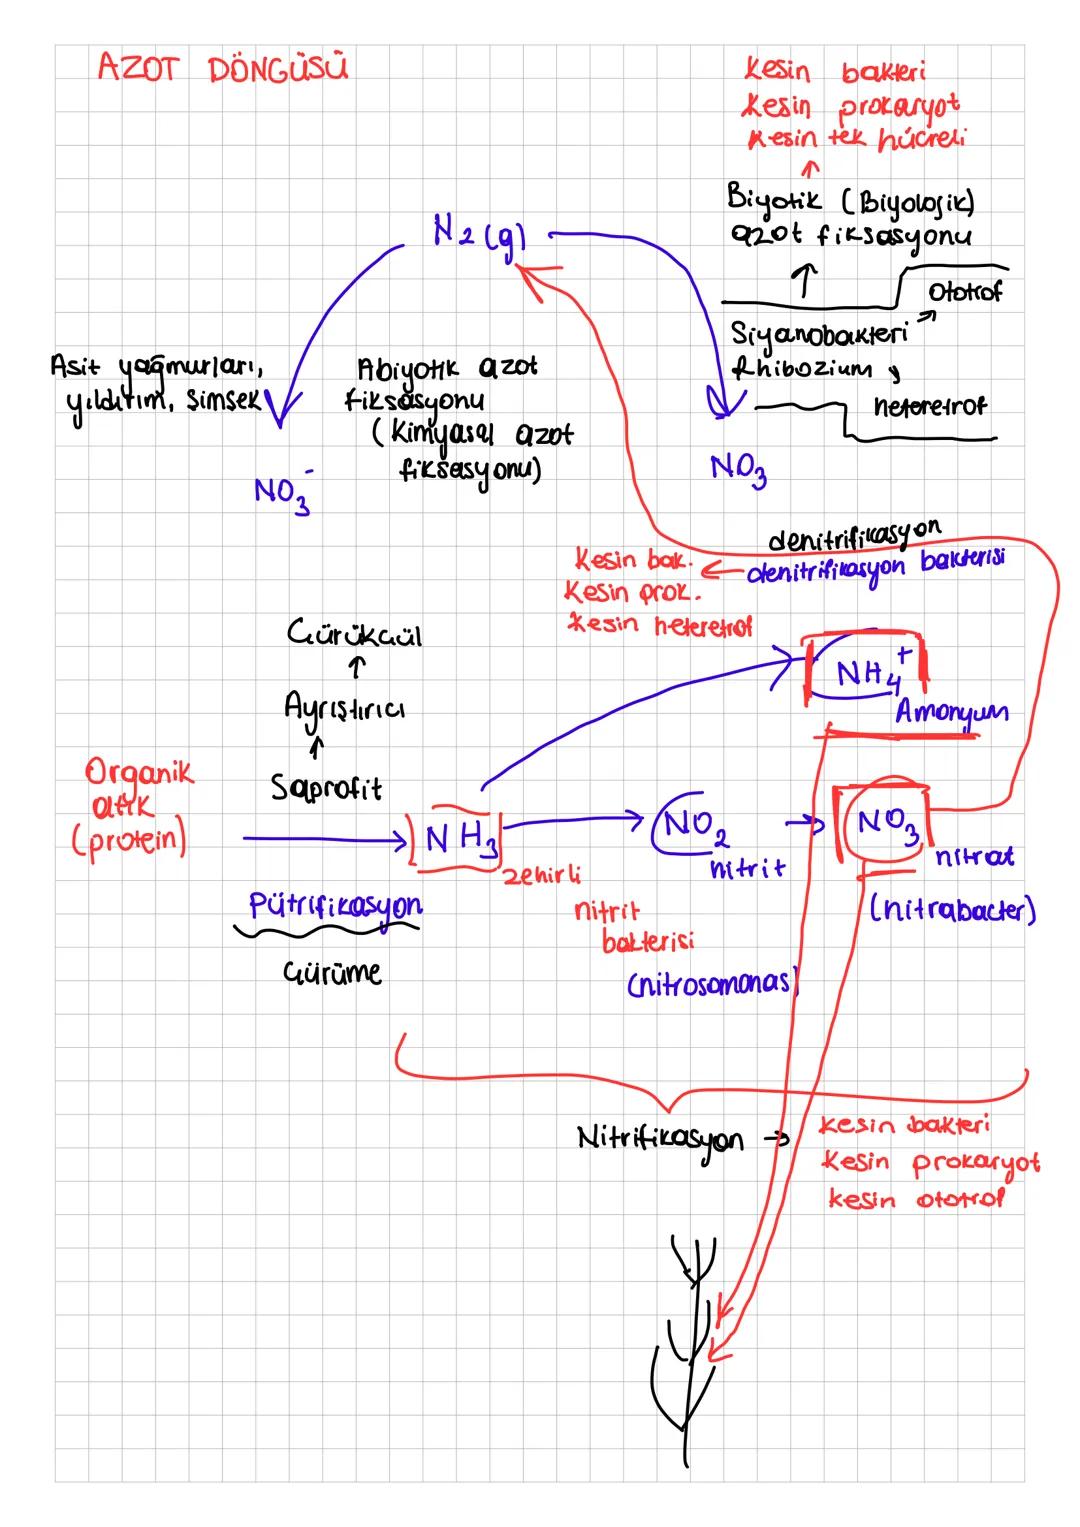 AZOT DÖNGÜSÜ
Kesin bakteri
Kesin prokaryot
Kesin tek hücreli
Biyotik (Biyolojik)
azot fiksasyonu
N2(g)
Ototrof
Siyanobakteri
Rhibozium
heteretrof
Asit yağmurları,
yıldırım, Simsek
Abiyotik azot
fiksasyonu
(Kimyasal azot
fiksasyonu)
NO3⁻
NO3
denitrifikasyon
denitrifikasyon bakterisi
Kesin bak.
Kesin prok.
Kesin heteretrof
Çürükçül
Ayrıştırıcı
Saprofit
NH4⁺
Amonyum
Organik
atık
(protein)
NH3
zehirli
NO2
nitrit
NO3
nitrat
(nitrabacter)
Pütrifikasyon
nitrit
bakterisi
(nitrosomonas)
Çürüme
Nitrifikasyon →
Kesin bakteri
Kesin prokaryot
kesin ototrof